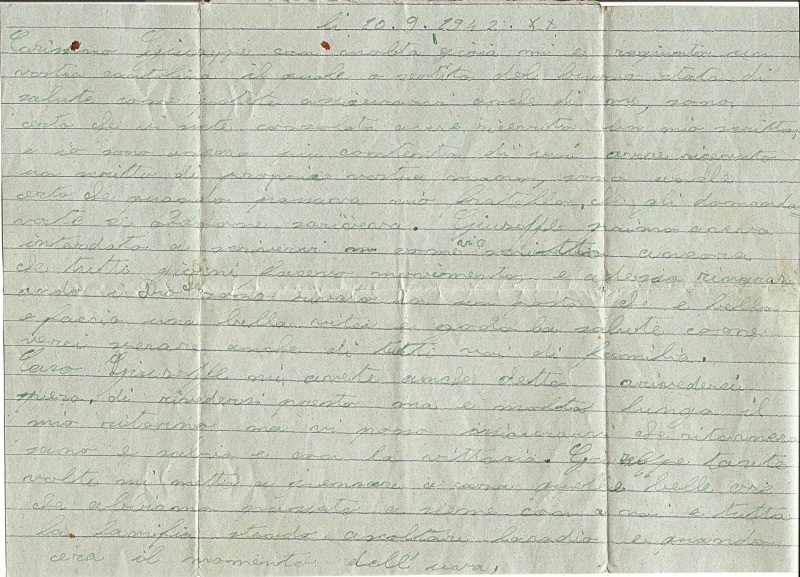 li 10.9.1942. XX
Carissimo Giuseppe con molta gioia mi e ragiunto un
vostra cartolina il quale o sentito del buono stato di
salute come potete assicurarvi anche di me, sono
certo che vi siete consolato avere ricevuto un mio scritto,
e io sono ancora piu contento di voi avere ricevuto
un scritto di proprie vostre mani, sono anche
certo che quando passava mio fratello, che gli domanda
vate se Adolfo scriveva. Giuseppe prima aveva
intardato a scrivervi come vio scritto ancora
che tutti giorni facevo movimento, e adesso ringrazi
ando a Dio che sono rivato in un posto che e bello
e faccio una bella vita e godo la salute come
vorei sperare anche di tutti voi di familia.
Caro Giuseppe mi avete anche detto arivederci
spero, di rivedersi presto ma e molto lungo il
mio ritorno ma vi posso assicurarvi che ritornero
sano e salvo e con la vittoria. Giuseppe tante
volte mi metto a pensare a cora quelle belle ore
che abbiamo passato a sieme con a voi e tutta
la familia stando ascoltare laradio e quando
cera il momento dell'uva,